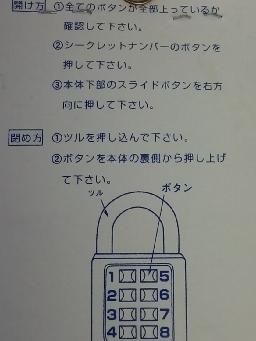 開け方 ①全てのボタンが全部上っているか
確認して下さい。
②シークレットナンバーのボタンを
押して下さい。
③本体下部のスライドボタンを右方
向に押して下さい。
閉め方 ①ツルを押し込んで下さい。
②ボタンを本体の裏側から押し上げ
て下さい。
ツル ボタン
1 5
2 6
3 7
4 8